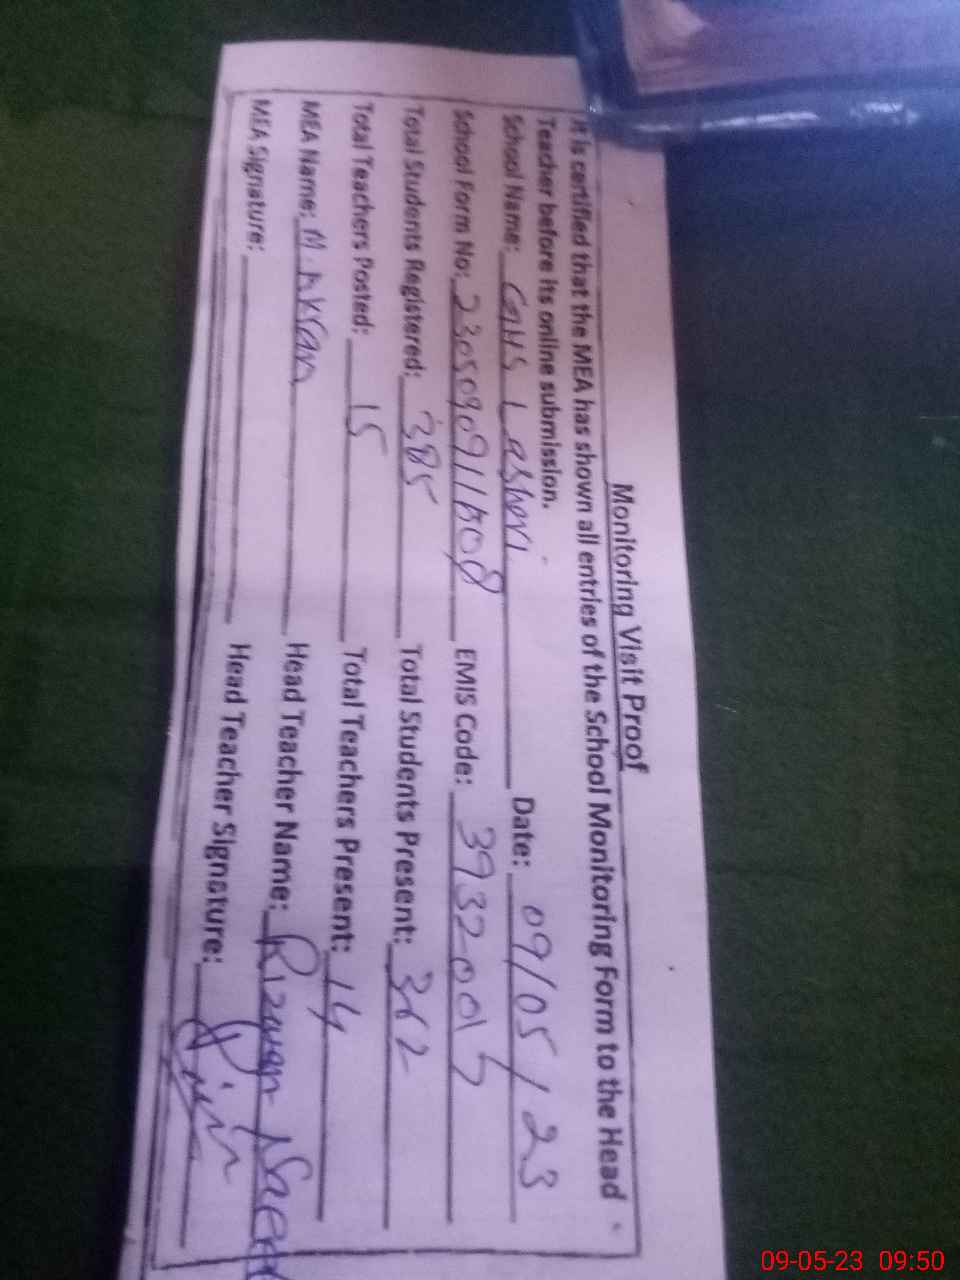 Monitoring Visit Proof
It is certified that the MEA has shown all entries of the School Monitoring Form to the Head
Teacher before its online submission.
School Name: GHS Lashari Date: 09/05/23
School Form No: EMIS Code:
Total Students Registered: 385 Total Students Present: 362
Total Teachers Posted: 15 Total Teachers Present: 14
MEA Name: M. Akram Head Teacher Name: Rizwan
MEA Signature: Head Teacher Signature:
09-05-23 09:50